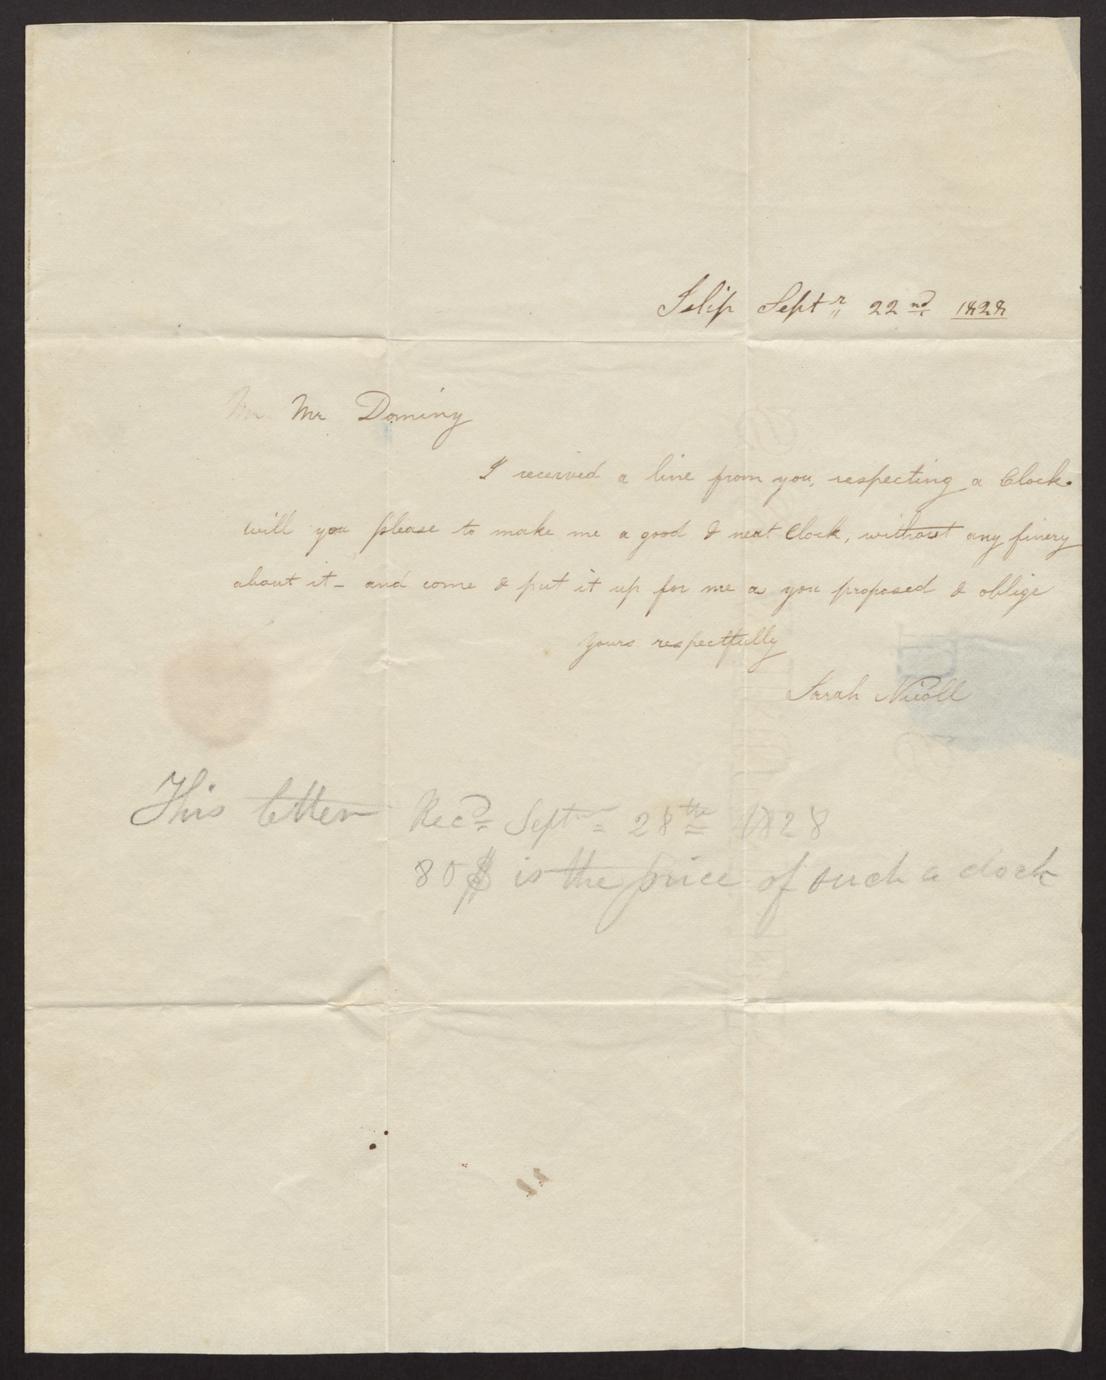 Islip Septr 22nd 1828
Mr Mr Dominy
I received a line from you, respecting a Clock.
will you please to make me a good & neat Clock, without any finery
about it - and come & put it up for me a you proposed & oblige
yours respectfully
Sarah Nicoll
This letter Recd Septr 28th 1828
80$ is the price of such a clock